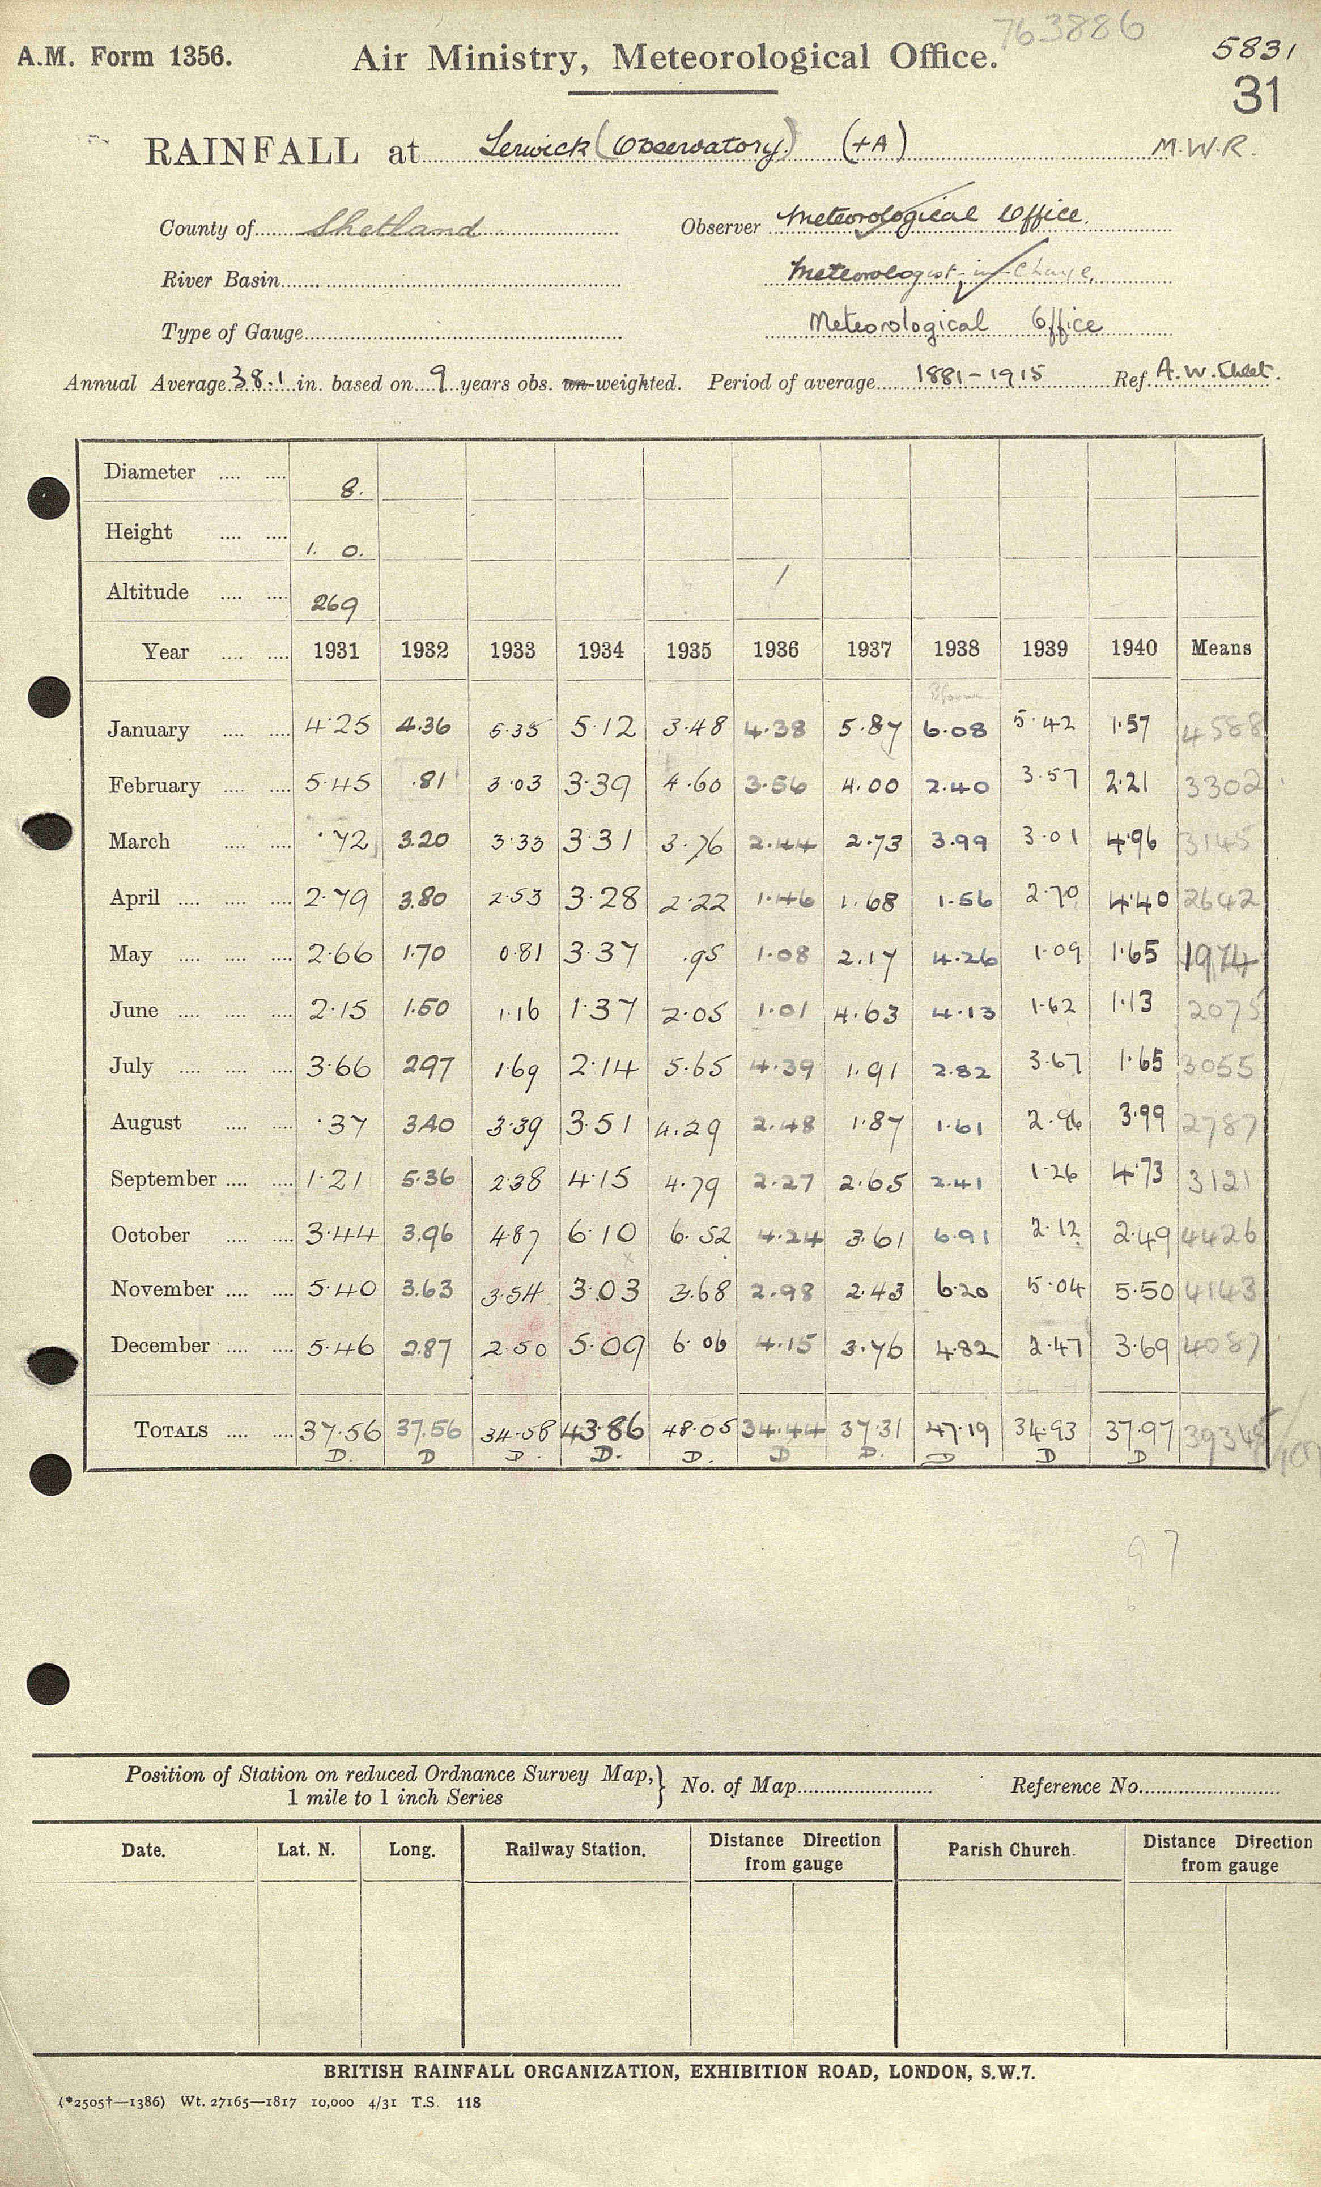 763886
A.M. Form 1356. Air Ministry, Meteorological Office. 5831
31
RAINFALL at Lerwick (Observatory) (+A) M.W.R.
County of Shetland Observer Meteorological Office.
River Basin Meteorologist-in-Charge,
Type of Gauge Meteorological Office
Annual Average 38.1 in. based on 9 years obs. un-weighted. Period of average 1881-1915 Ref A.W. Sheet.
Diameter 8.
Height 1. 0.
Altitude 269
Year 1931 1932 1933 1934 1935 1936 1937 1938 1939 1940 Means
January 4.25 4.36 5.35 5.12 3.48 4.38 5.87 6.08 5.42 1.57 4588
February 5.45 .81 3.03 3.39 4.60 3.56 4.00 2.40 3.57 2.21 3302
March .72 3.20 3.33 3.31 3.76 2.44 2.73 3.99 3.01 4.96 3145
April 2.79 3.80 2.53 3.28 2.22 1.46 1.68 1.56 2.70 4.40 2642
May 2.66 1.70 0.81 3.37 .95 1.08 2.17 4.26 1.09 1.65 1974
June 2.15 1.50 1.16 1.37 2.05 1.01 4.63 4.13 1.62 1.13 2075
July 3.66 2.97 1.69 2.14 5.65 4.39 1.91 2.82 3.67 1.65 3055
August .37 3.40 3.39 3.51 4.29 2.48 1.87 1.61 2.96 3.99 2787
September 1.21 5.36 2.38 4.15 4.79 2.27 2.65 2.41 1.26 4.73 3121
October 3.44 3.96 4.87 6.10 6.52 4.24 3.61 6.91 2.12 2.49 4426
November 5.40 3.63 3.54 3.03 3.68 2.98 2.43 6.20 5.04 5.50 4143
December 5.46 2.87 2.50 5.09 6.06 4.15 3.76 4.82 2.47 3.69 4087
TOTALS 37.56 37.56 34.58 43.86 48.05 34.44 37.31 47.19 34.93 37.97
D. D D. D. D. D D. D D D
97
Position of Station on reduced Ordnance Survey Map, } No. of Map Reference No
1 mile to 1 inch Series
Date. Lat. N. Long. Railway Station. Distance Direction Parish Church. Distance Direction
from gauge from gauge
BRITISH RAINFALL ORGANIZATION, EXHIBITION ROAD, LONDON, S.W.7.
(*2505†—1386) Wt. 27165—1817 10,000 4/31 T.S. 118